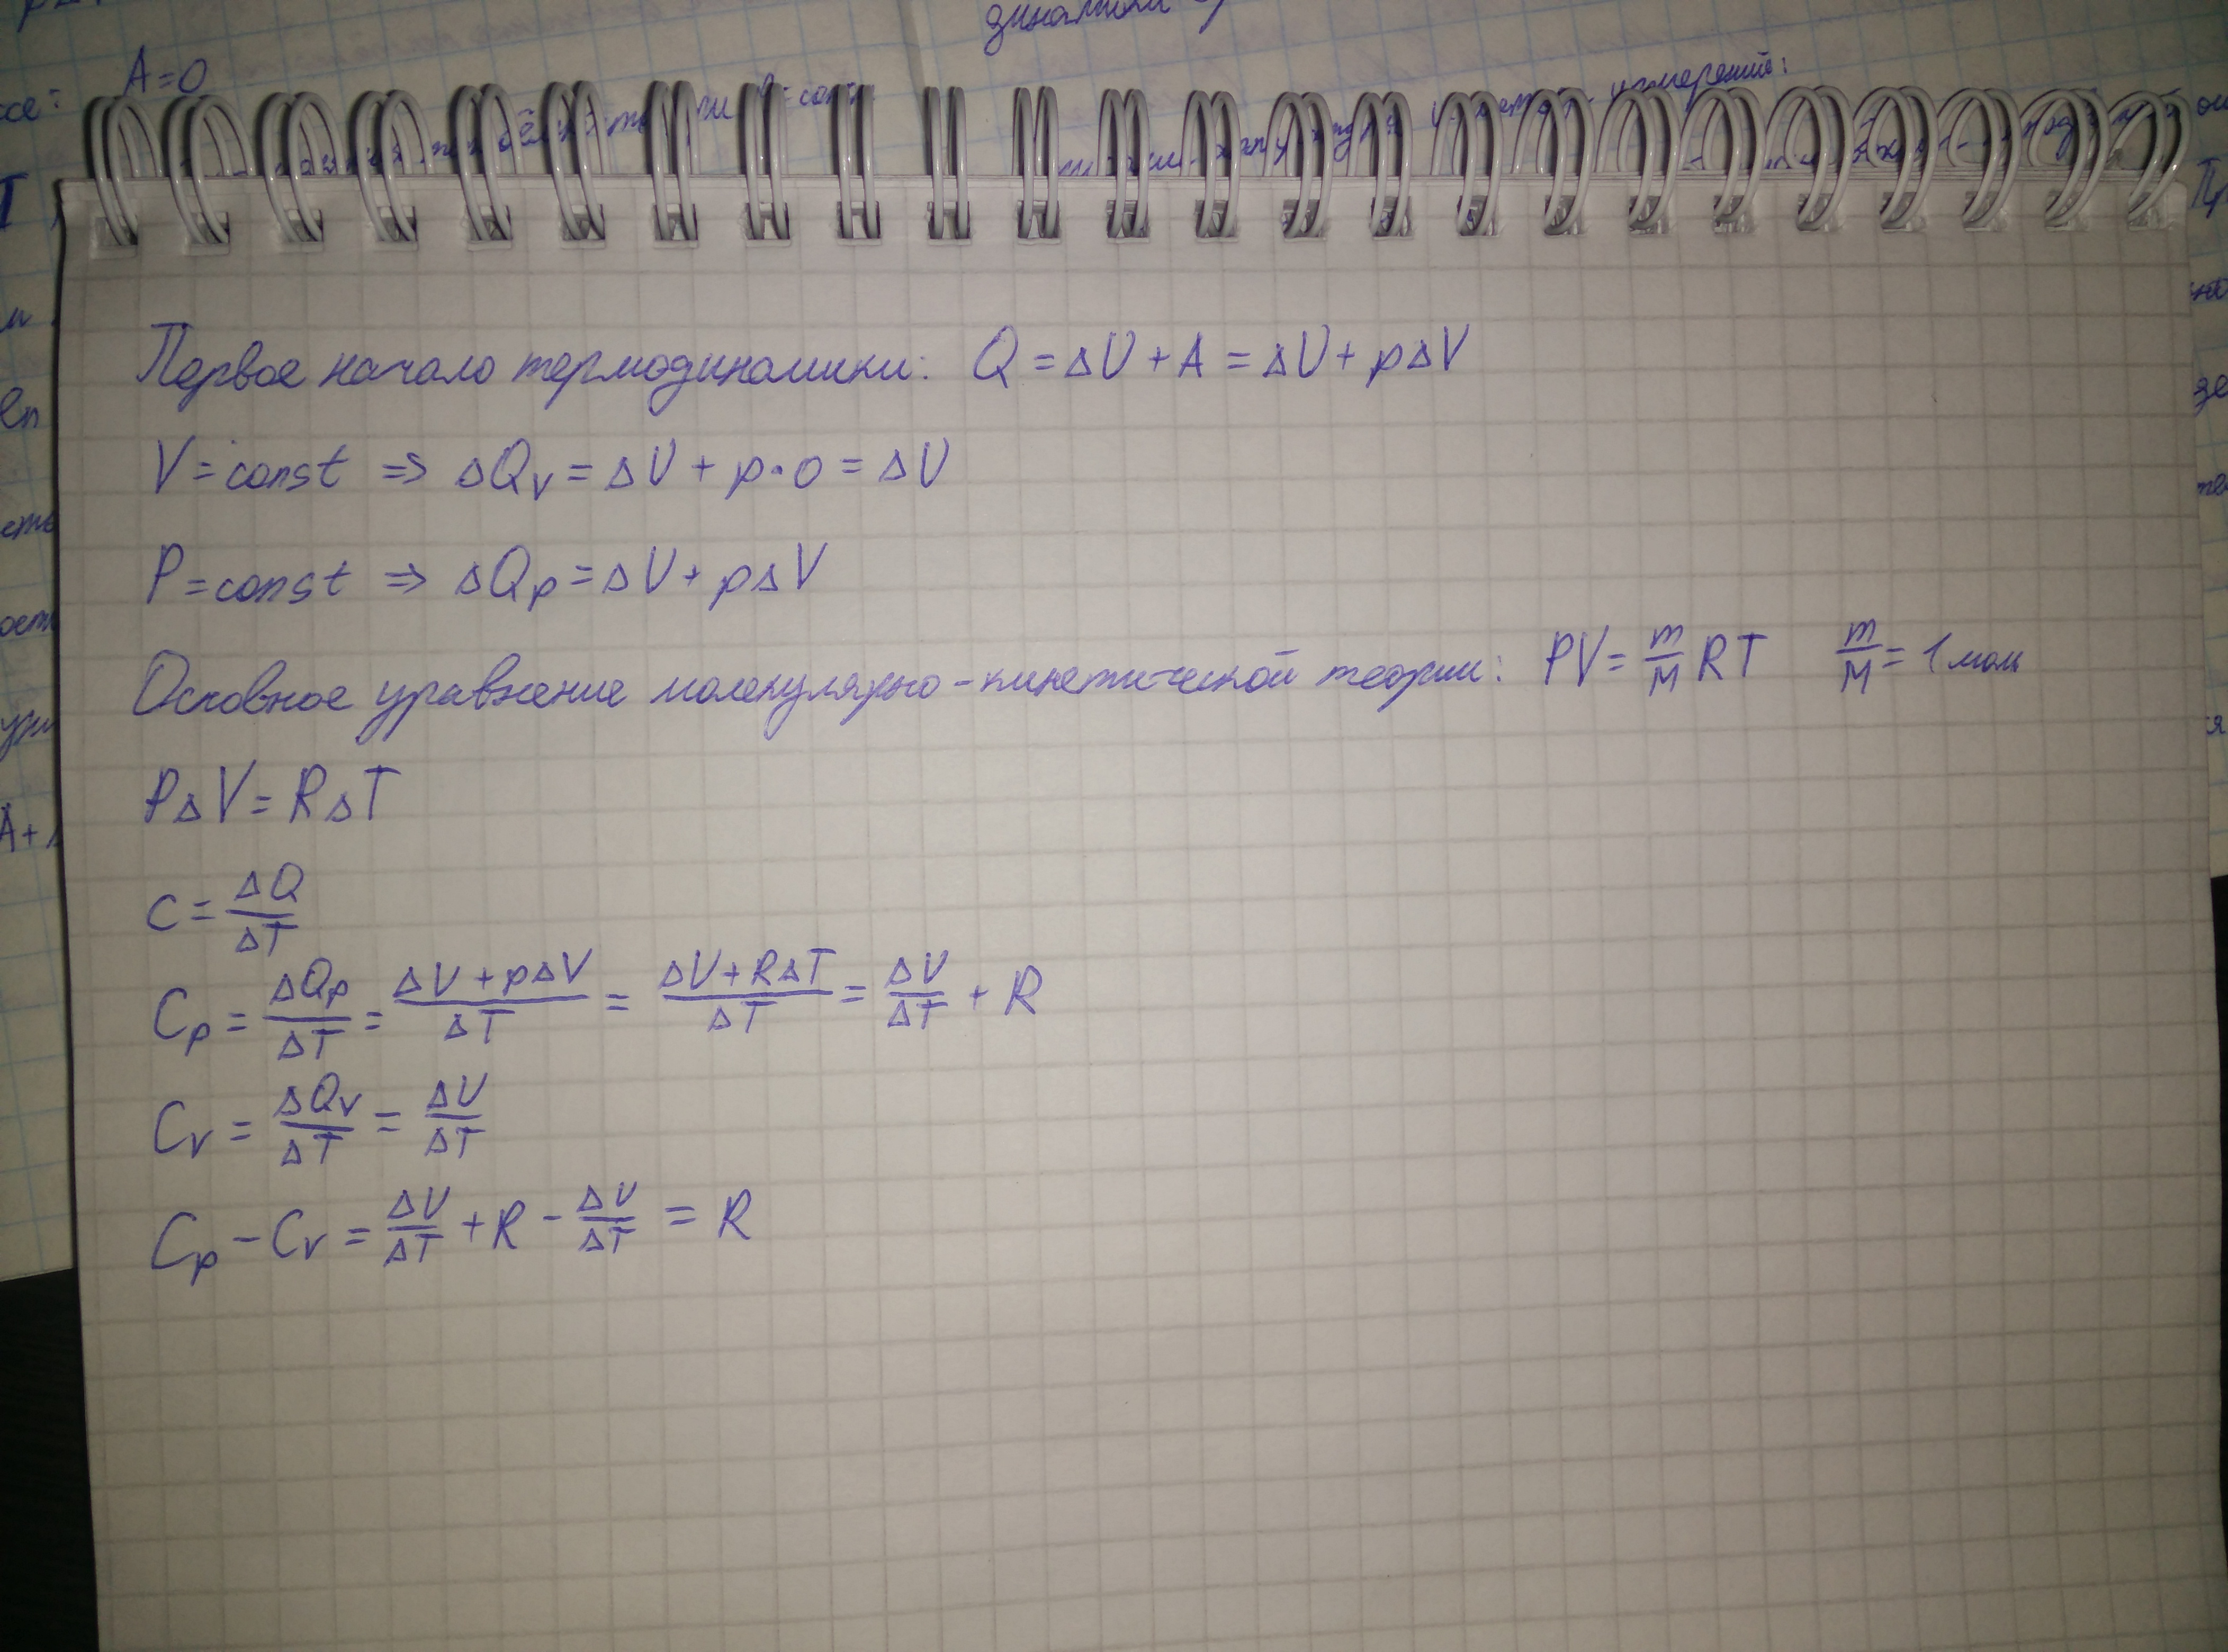 A=0
Первое начало термодинамики: Q = ΔU + A = ΔU + pΔV
V = const ⇒ ΔQ_V = ΔU + p·0 = ΔU
P = const ⇒ ΔQ_p = ΔU + pΔV
Основное уравнение молекулярно-кинетической теории: PV = m/M RT   m/M = 1 моль
PΔV = RΔT
C = ΔQ/ΔT
C_p = ΔQ_p/ΔT = (ΔU + pΔV)/ΔT = (ΔU + RΔT)/ΔT = ΔU/ΔT + R
C_V = ΔQ_V/ΔT = ΔU/ΔT
C_p - C_V = ΔU/ΔT + R - ΔU/ΔT = R